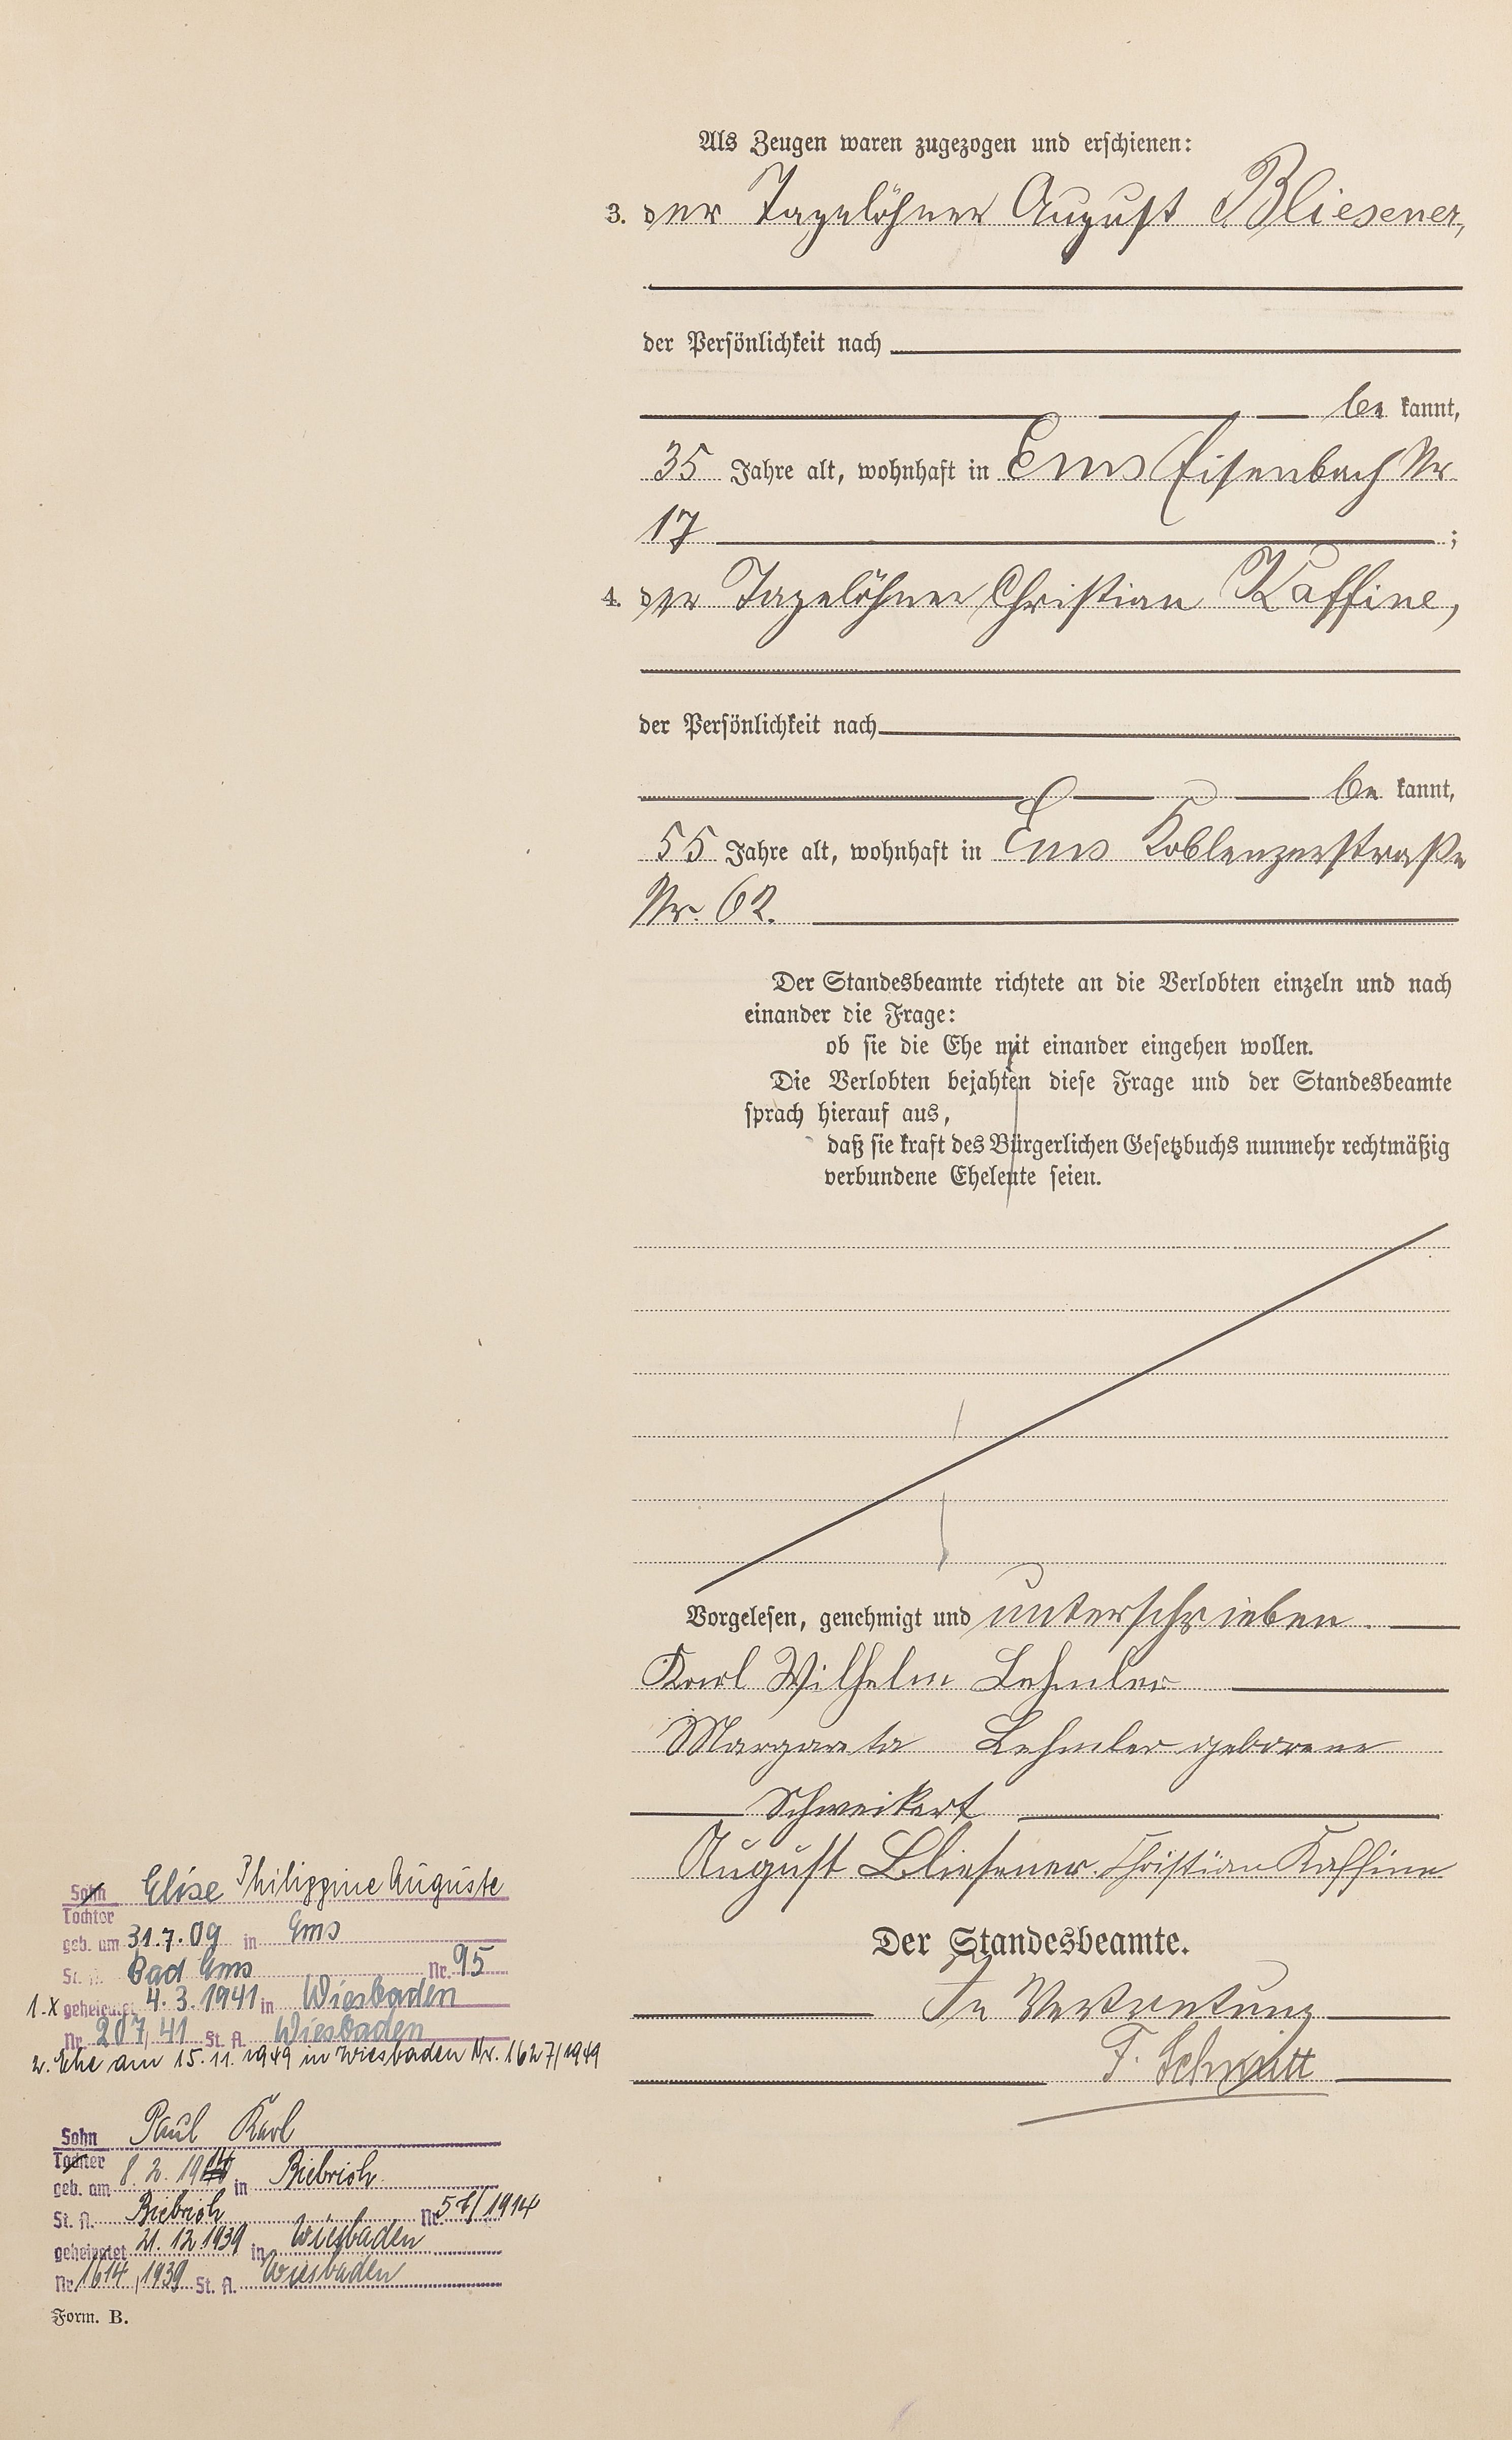 Als Zeugen waren zugezogen und erschienen:
3. der Tagelöhner August Bliesener,
der Persönlichkeit nach
be kannt,
35 Jahre alt, wohnhaft in Ems Eisenbach Nr.
17 ;
4. der Tagelöhner Christian Kaffine,
der Persönlichkeit nach
be kannt,
55 Jahre alt, wohnhaft in Ems Koblenzerstraße
Nr. 62.
Der Standesbeamte richtete an die Verlobten einzeln und nach
einander die Frage:
ob sie die Ehe mit einander eingehen wollen.
Die Verlobten bejahten diese Frage und der Standesbeamte
sprach hierauf aus,
daß sie kraft des Bürgerlichen Gesetzbuchs nunmehr rechtmäßig
verbundene Eheleute seien.
Vorgelesen, genehmigt und unterschrieben
Karl Wilhelm Lehmler
Margareta Lehmler geborene
Schweikert
August Bliesener. Christian Kaffine
Der Standesbeamte.
In Vertretung
F. Schmitt
Sohn Elise Philippine Auguste
Tochter
geb. am 31.7.09 in Ems
St. A. Bad Ems Nr. 95
1. X geheiratet 4.3.1941 in Wiesbaden
Nr. 207/41 St. A. Wiesbaden
2. Ehe am 15.11.1949 in Wiesbaden Nr. 1627/1949
Sohn Paul Karl
Tochter
geb. am 8.2.1914 in Biebrich
St. A. Biebrich Nr. /1914
geheiratet 21.12.1939 in Wiesbaden
Nr. 1614/1939 St. A. Wiesbaden
Form. B.